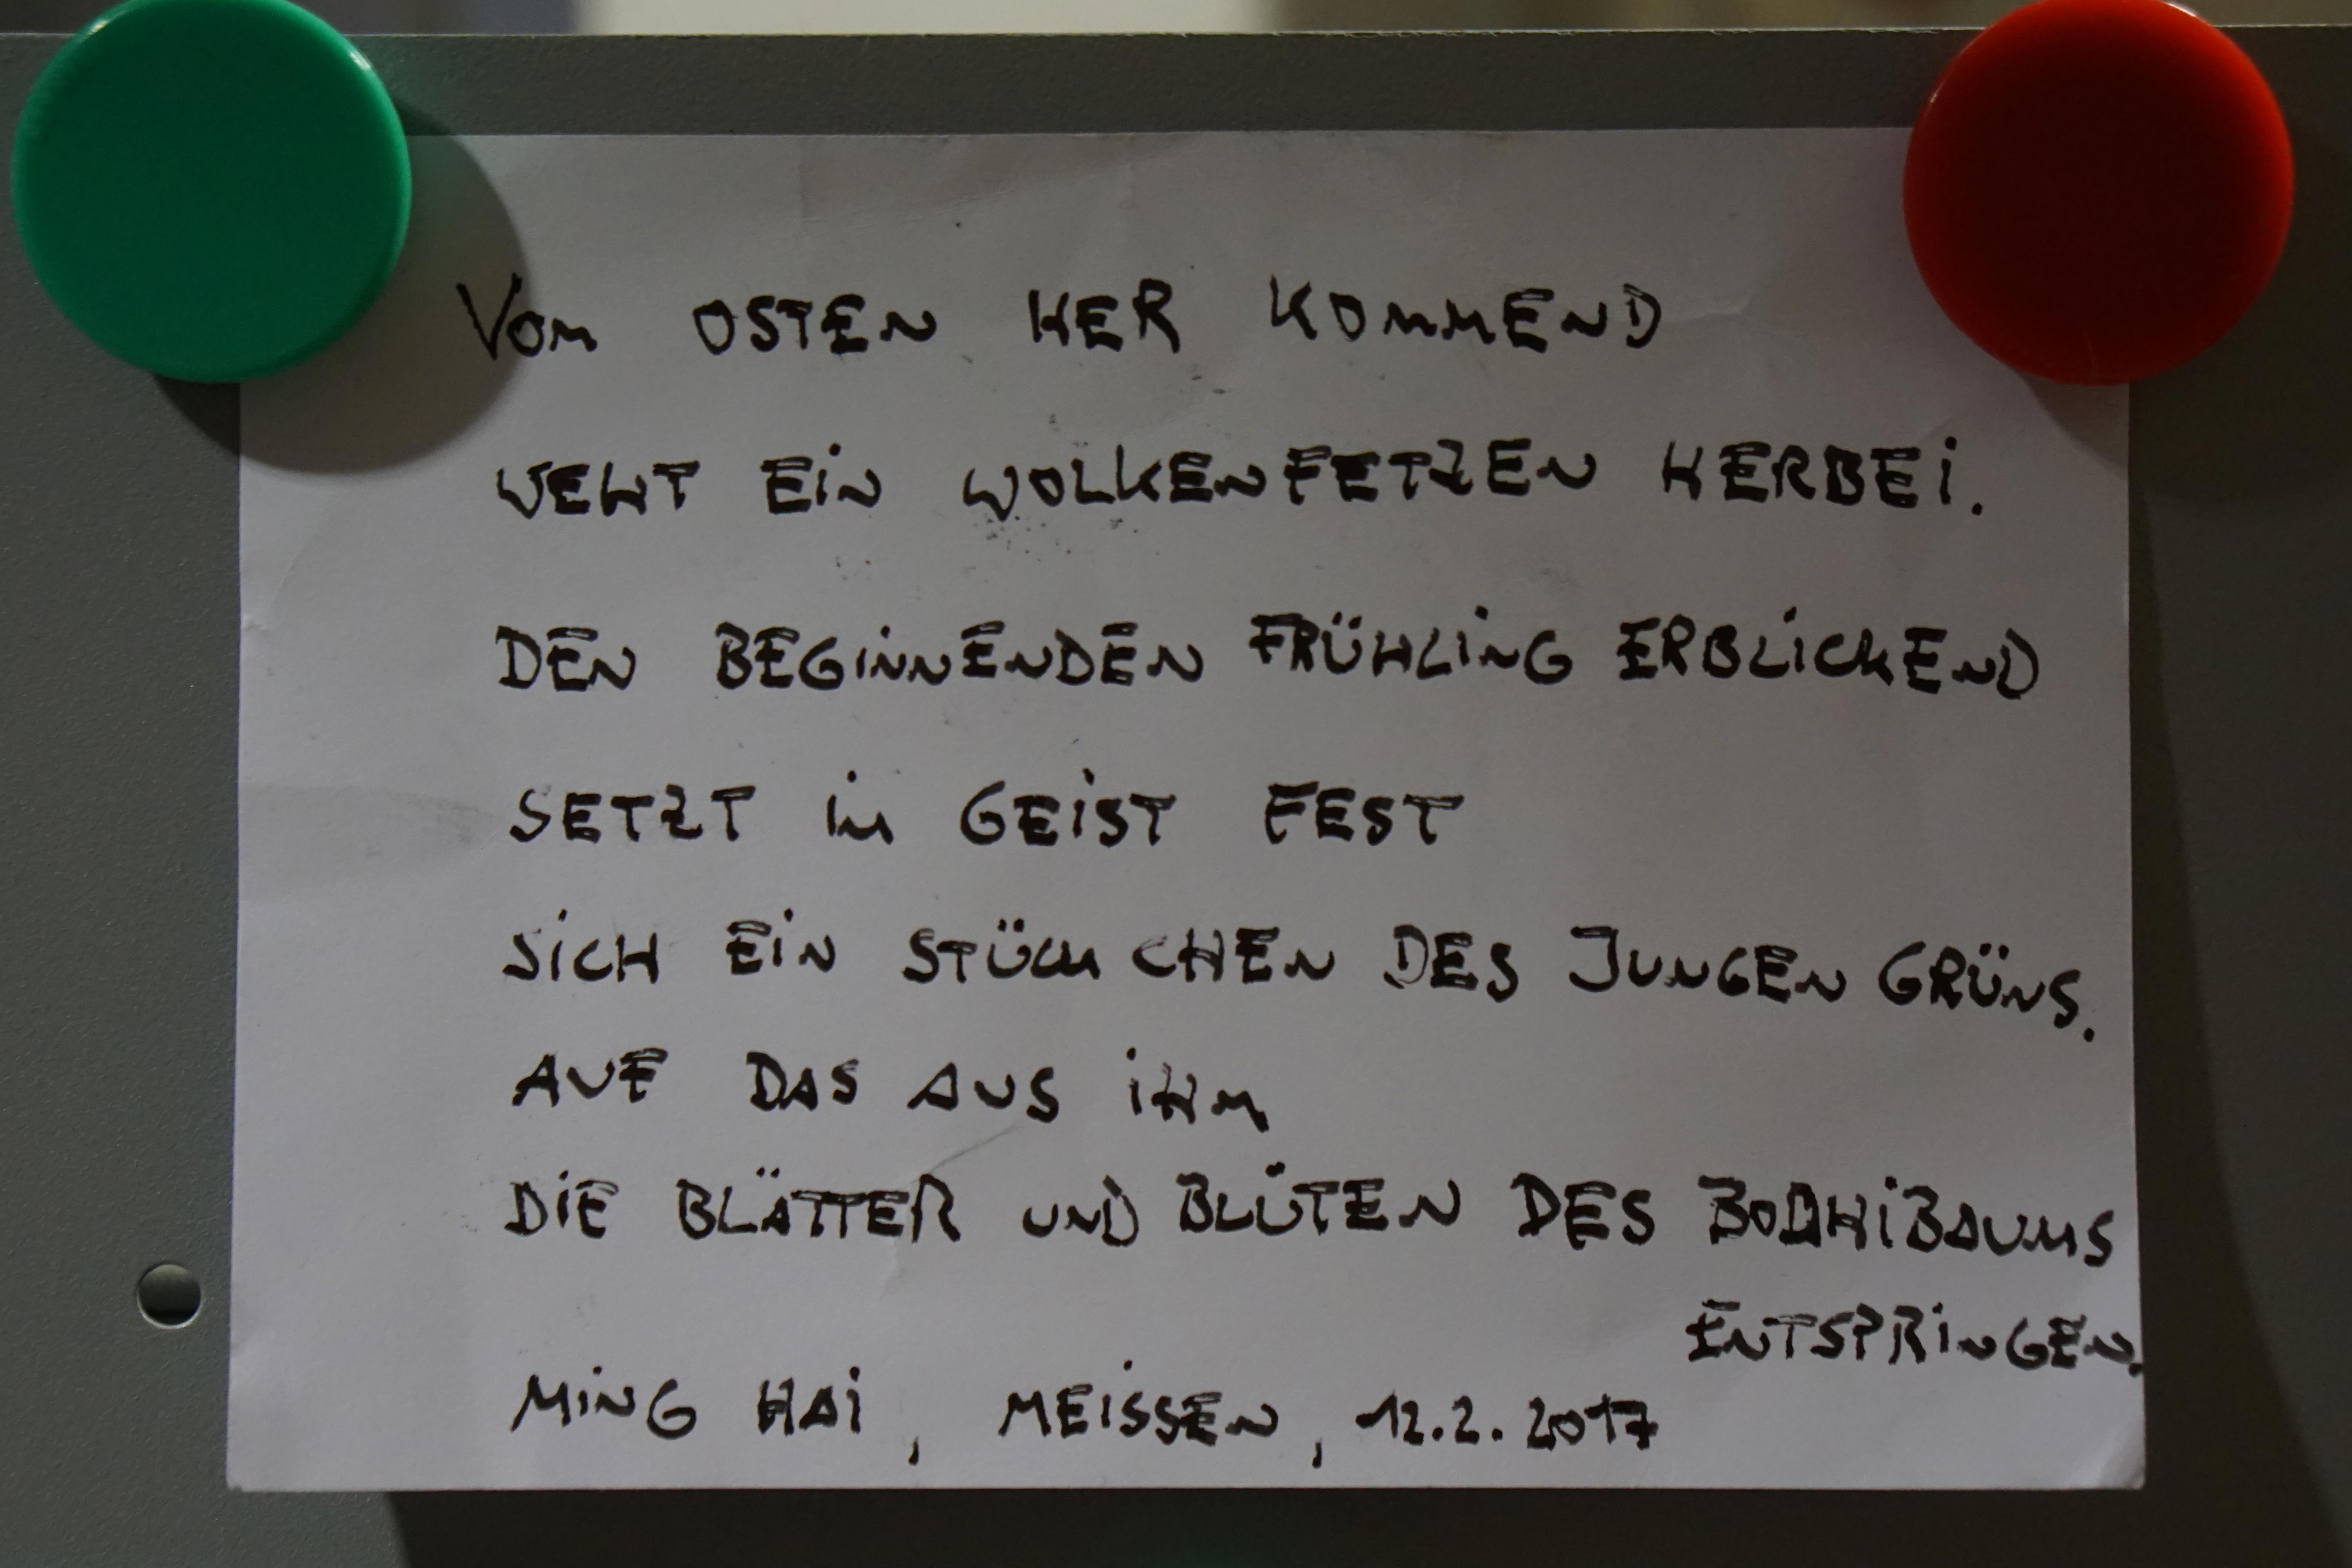 VOM OSTEN HER KOMMEND
WEHT EIN WOLKENFETZEN HERBEI.
DEN BEGINNENDEN FRÜHLING ERBLICKEND
SETZT IM GEIST FEST
SICH EIN STÜCKCHEN DES JUNGEN GRÜNS.
AUF DAS AUS IHM
DIE BLÄTTER UND BLÜTEN DES BODHIBAUMS
ENTSPRINGEN.
MING HAI, MEISSEN, 12.2.2017